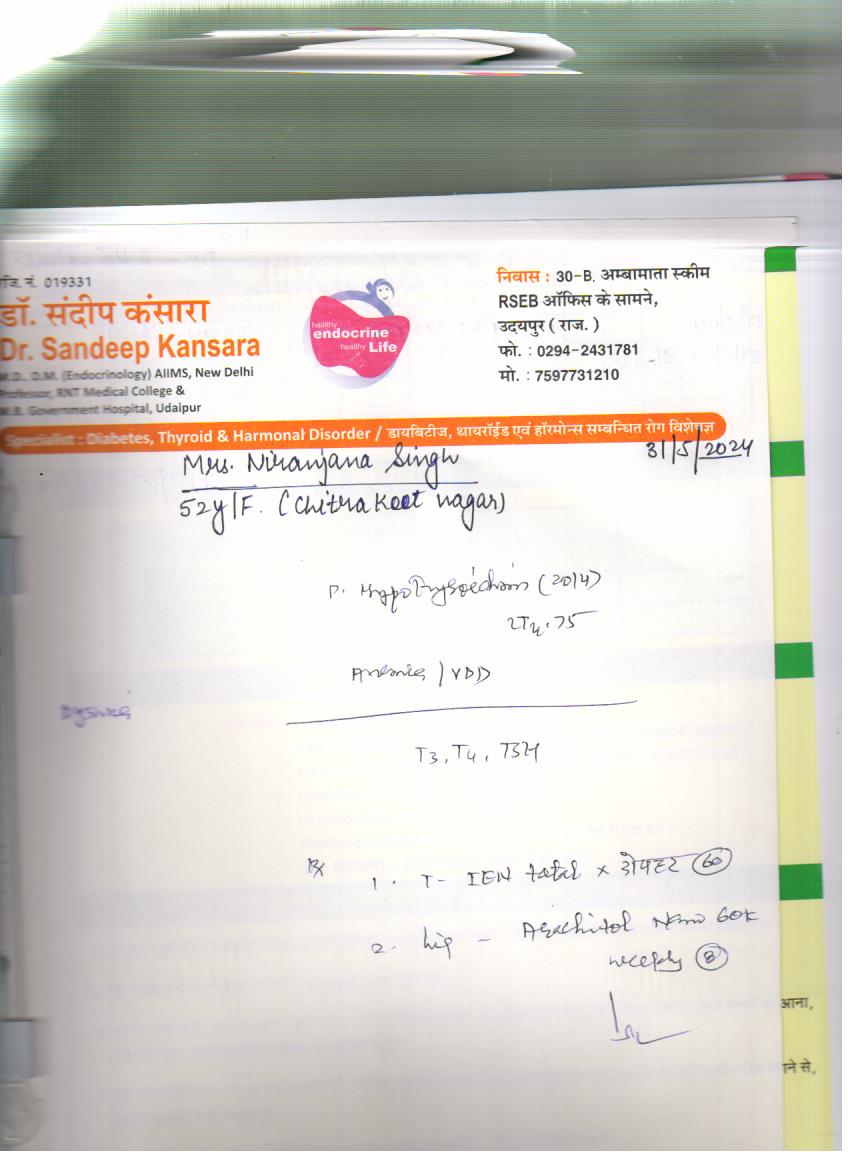 रजि. नं. 019331
डॉ. संदीप कंसारा
Dr. Sandeep Kansara
M.D., D.M. (Endocrinology) AIIMS, New Delhi
Professor, RNT Medical College &
M.B. Government Hospital, Udaipur
healthy
endocrine
healthy Life
निवास : 30-B, अम्बामाता स्कीम
RSEB ऑफिस के सामने,
उदयपुर ( राज. )
फो. : 0294-2431781
मो. : 7597731210
Specialist : Diabetes, Thyroid & Harmonal Disorder / डायबिटीज, थायरॉईड एवं हॉरमोन्स सम्बन्धित रोग विशेषज्ञ
Mrs. Niranjana Singh
31/5/2024
52y/F. (Chitrakoot nagar)
P. Hypothyroidism (2014)
LT4. 75
Anemia / VDD
T3, T4, TSH
Rx
1. T- IEN total x दोपहर 60
2. liq - Arachitol Nano 60K
weekly 8
आना,
ने से,